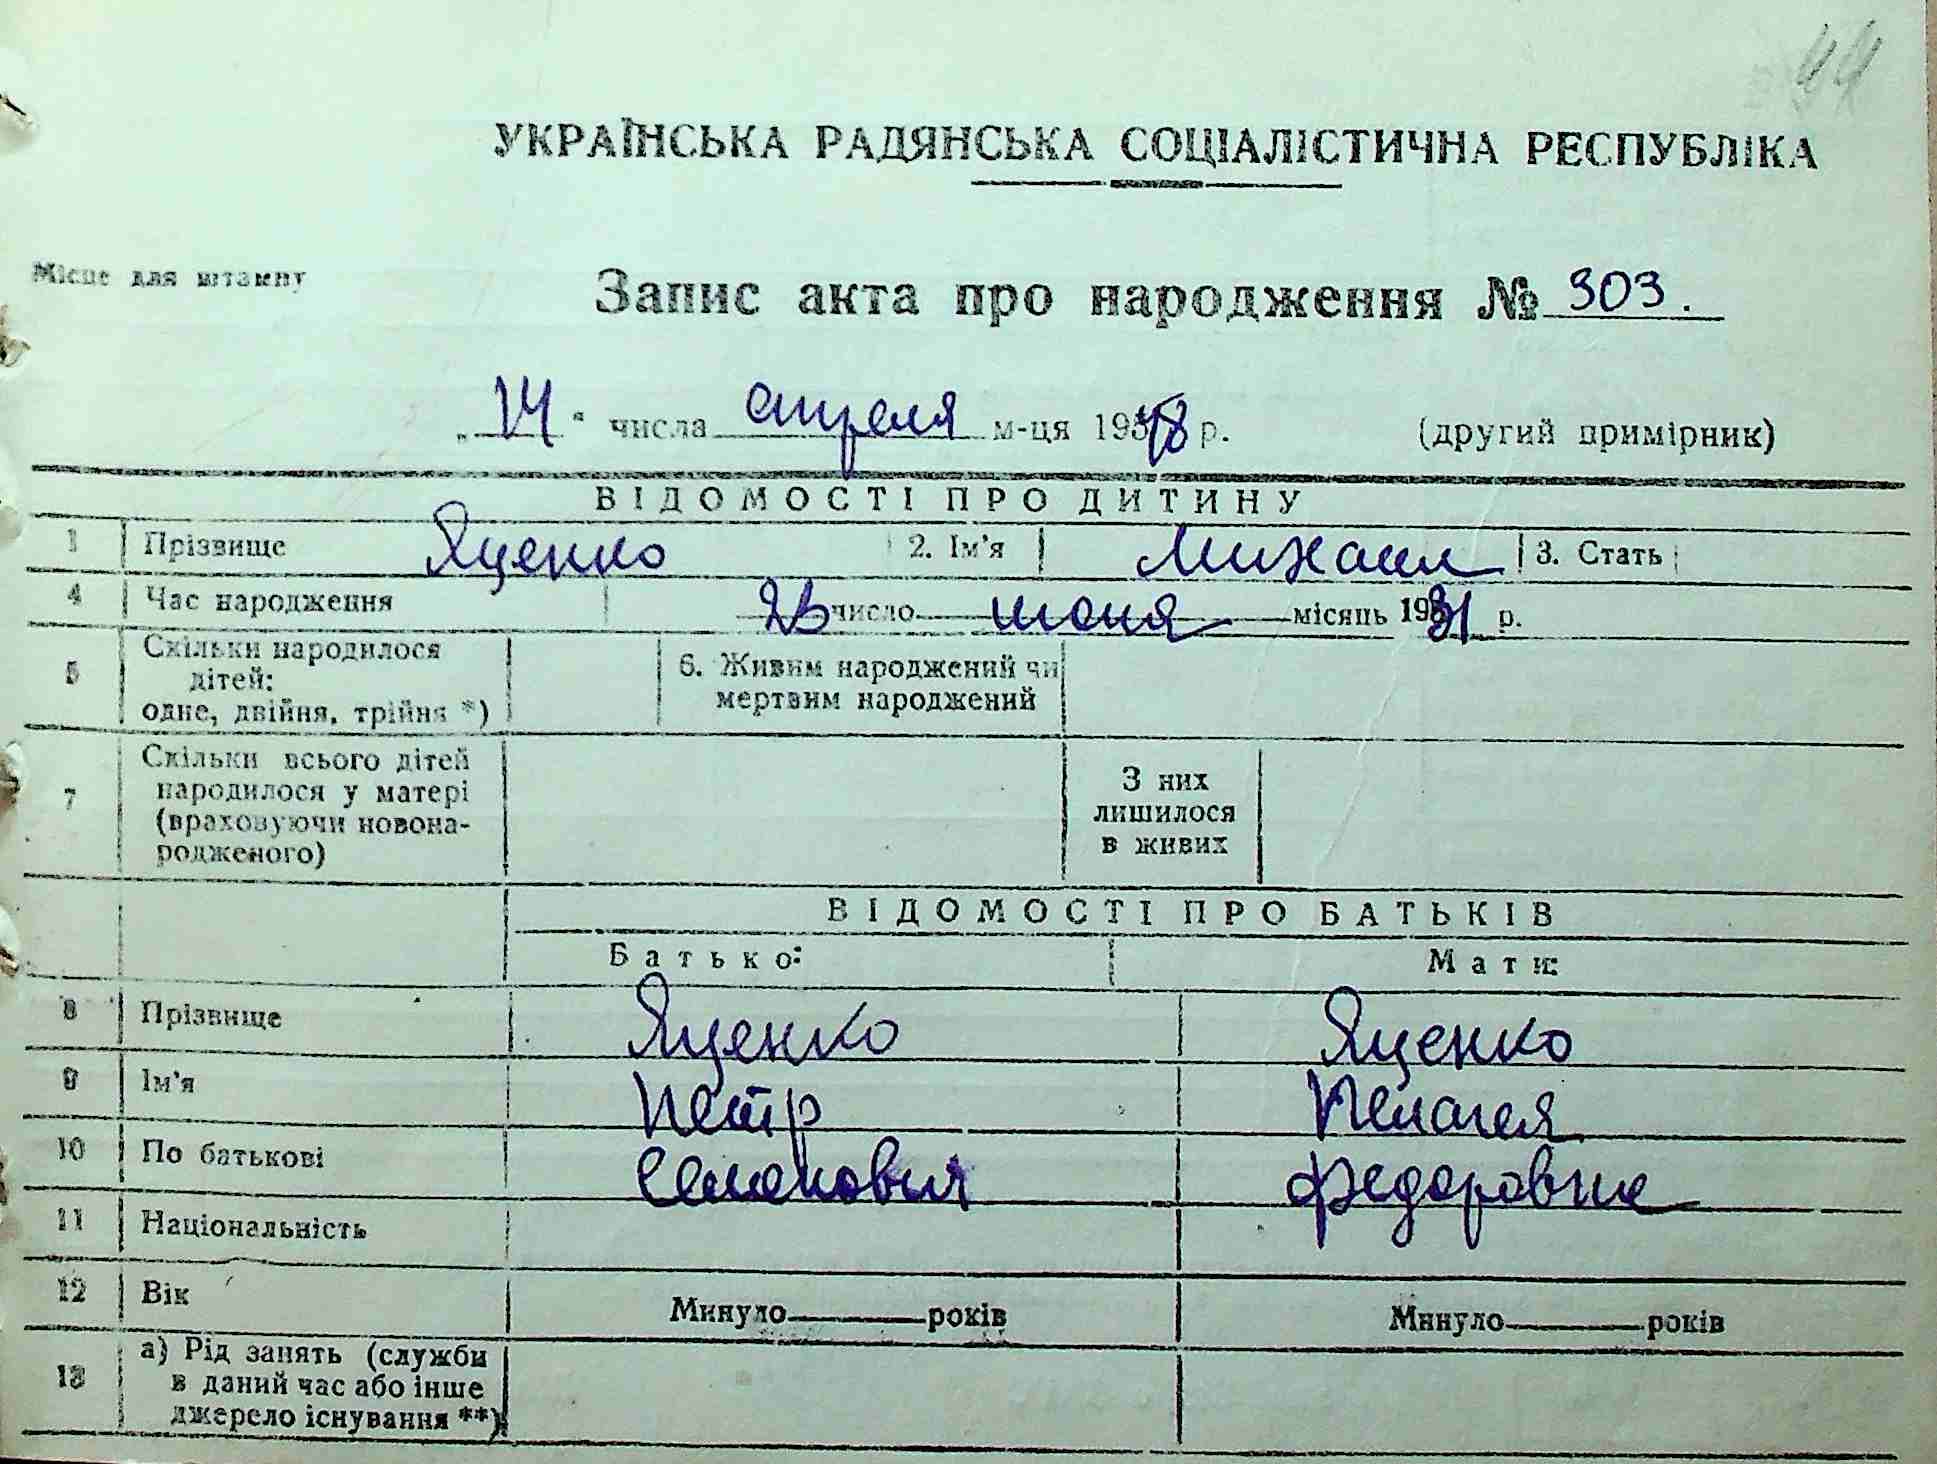 44
УКРАЇНСЬКА РАДЯНСЬКА СОЦІАЛІСТИЧНА РЕСПУБЛІКА
Місце для штампу
Запис акта про народження № 303.
„14“ числа апреля м-ця 1948 р. (другий примірник)
ВІДОМОСТІ ПРО ДИТИНУ
1 Прізвище Яценко 2. Ім'я Михаил 3. Стать
4 Час народження 23 число июня місяць 1931 р.
5 Скільки народилося дітей: одне, двійня, трійня *) 6. Живим народжений чи мертвим народжений
7 Скільки всього дітей народилося у матері (враховуючи новонародженого) З них лишилося в живих
ВІДОМОСТІ ПРО БАТЬКІВ
Батько: Мати:
8 Прізвище Яценко Яценко
9 Ім'я Петр Пелагея
10 По батькові Семенович Федоровна
11 Національність
12 Вік Минуло років Минуло років
13 а) Рід занять (служби в даний час або інше джерело існування **)